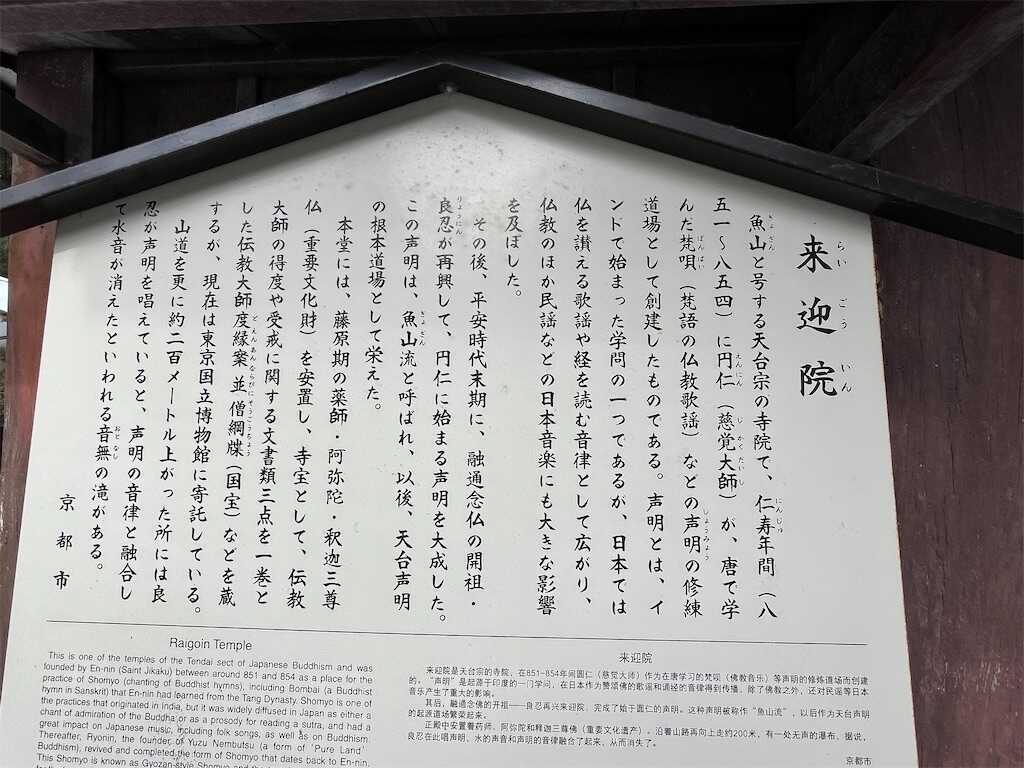 来迎院
らいごういん
魚山と号する天台宗の寺院で、仁寿年間（八
五一〜八五四）に円仁（慈覚大師）が、唐で学
んだ梵唄（梵語の仏教歌謡）などの声明の修練
道場として創建したものである。声明とは、イ
ンドで始まった学問の一つであるが、日本では
仏を讃える歌謡や経を読む音律として広がり、
仏教のほか民謡などの日本音楽にも大きな影響
を及ぼした。
その後、平安時代末期に、融通念仏の開祖・
良忍が再興して、円仁に始まる声明を大成した。
この声明は、魚山流と呼ばれ、以後、天台声明
の根本道場として栄えた。
本堂には、藤原期の薬師・阿弥陀・釈迦三尊
仏（重要文化財）を安置し、寺宝として、伝教
大師の得度や受戒に関する文書類三点を一巻と
した伝教大師度縁案並僧綱牒（国宝）などを蔵
するが、現在は東京国立博物館に寄託している。
山道を更に約二百メートル上がった所には良
忍が声明を唱えていると、声明の音律と融合し
て水音が消えたといわれる音無の滝がある。
京都市
Raigoin Temple
This is one of the temples of the Tendai sect of Japanese Buddhism and was
founded by En-nin (Saint Jikaku) between around 851 and 854 as a place for the
practice of Shomyo (chanting of Buddhist hymns), including Bombai (a Buddhist
hymn in Sanskrit) that En-nin had learned from the Tang Dynasty. Shomyo is one of
the practices that originated in India, but it was widely diffused in Japan as either a
chant of admiration of the Buddha or as a prosody for reading a sutra, and had a
great impact on Japanese music, including folk songs, as well as on Buddhism.
Thereafter, Ryonin, the founder of Yuzu Nembutsu (a form of 'Pure Land'
Buddhism), revived and completed the form of Shomyo that dates back to En-nin.
This Shomyo is known as Gyozan-style Shomyo and the
来迎院
来迎院是天台宗的寺院，在851-854年间圆仁（慈觉大师）作为在唐学习的梵呗（佛教音乐）等声明的修炼道场而创建
的。"声明"是起源于印度的一门学问，在日本作为赞颂佛的歌谣和诵经的音律得到传播，除了佛教之外，还对民谣等日本
音乐产生了重大的影响。
其后，融通念佛的开祖——良忍再兴来迎院，完成了始于圆仁的声明。这种声明被称作"鱼山流"，以后作为天台声明
的起源道场繁荣起来。
正殿中安置着药师、阿弥陀和释迦三尊佛（重要文化遗产）。沿着山路再向上走约200米，有一处无声的瀑布，据说，
良忍在此唱声明，水的声音和声明的音律融合了起来，从而消失了。
京都市